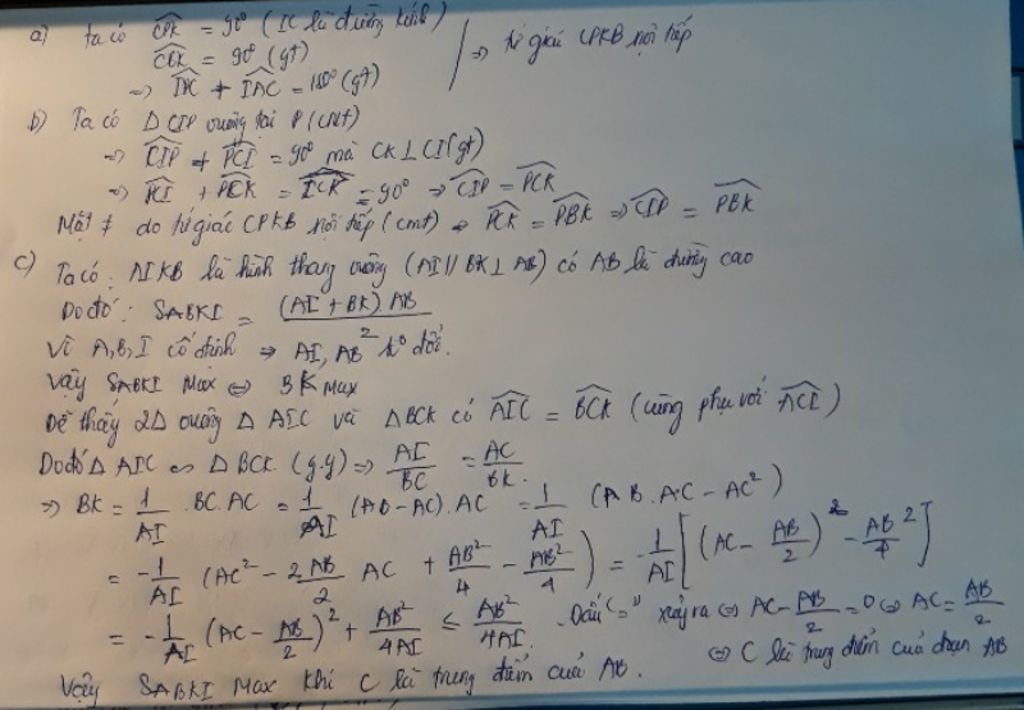 a) Ta có ĈPK = 90° (IC là đường kính)
ĈBK = 90° (gt) | ⇒ tứ giác CPKB nội tiếp
⇒ + ÎAC = 180° (gt)
b) Ta có Δ CIP vuông tại P (cmt)
⇒ ĈIP + P̂CI = 90° mà CK⊥CI (gt)
⇒ P̂CI + P̂CK = ÎCK = 90° ⇒ ĈIP = P̂CK
Mặt ≠ do tứ giác CPKB nội tiếp (cmt) ⇒ P̂CK = P̂BK ⇒ ĈIP = P̂BK
c) Ta có: AIKB là hình thang vuông (AI // BK ⊥ AB) có AB là đường cao
Do đó: SABKI = (AI + BK). AB / 2
Vì A,B,I cố định ⇒ AI, AB k° đổi.
Vậy SABKI Max ⇔ BK max
Dễ thấy 2Δ vuông Δ AIC và ΔBCK có ÂIC = B̂CK (cùng phụ với ÂCI)
Do đó Δ AIC ∽ Δ BCK (g.g) ⇒ AI/BC = AC/BK.
⇒ BK = 1/AI . BC. AC = 1/AI (AB - AC). AC = 1/AI (AB.AC - AC²)
= -1/AI (AC² - 2 AB/2 AC + AB²/4 - AB²/4) = -1/AI [(AC - AB/2)² - AB²/4]
= -1/AI (AC - AB/2)² + AB²/4AI ≤ AB²/4AI. Dấu "=" xảy ra ⇔ AC - AB/2 = 0 ⇔ AC = AB/2
⇔ C là trung điểm của đoạn AB
Vậy SABKI Max khi C là trung điểm của AB.